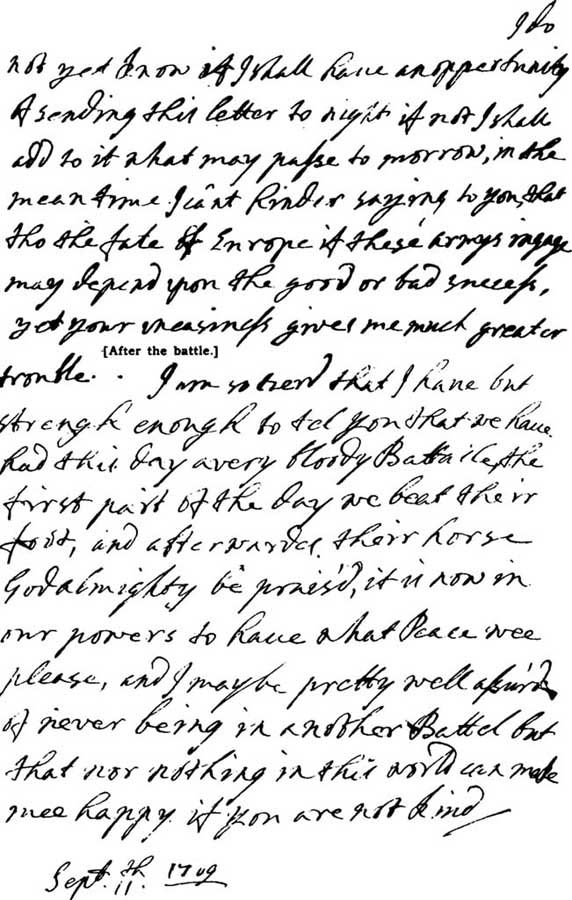 I do
not yet know if I shall have an oppertunity
of sending this letter to night if not I shall
add to it what may passe to morrow, in the
mean time I cant hinder saying to you that
tho the fate of Europe if these armys ingage
may depend upon the good or bad success,
yet your uneasiness gives me much greater
[After the battle.]
trouble. . I am so tierd that I have but
strengh enough to tel you that we have
had this day a very bloody Battaile, the
first part of the day we beat their
foot, and afterwardes their horse
God almighty be prais'd, it is now in
our powers to have what Peace wee
please, and I may be pretty well assur'd
of never being in another Battel but
that nor nothing in this world can make
mee happy if you are not kind
Sept. 11th. 1709